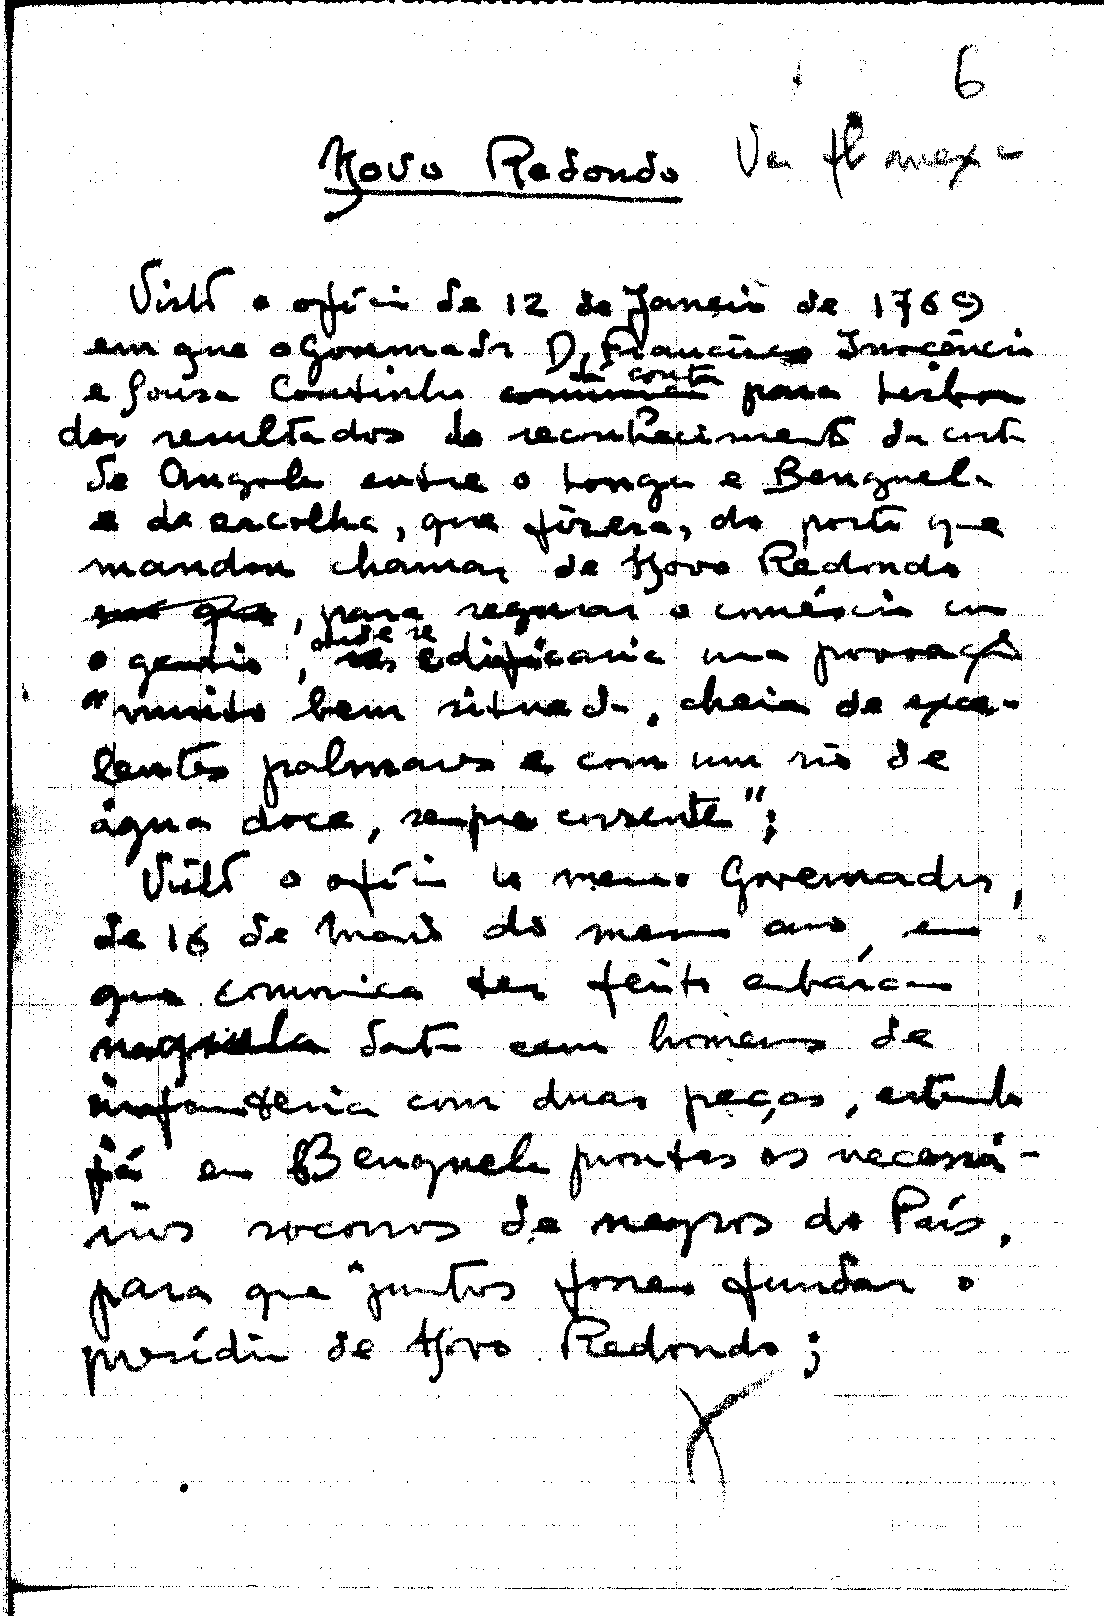 6
Novo Redondo
Visto o ofício de 12 de Janeiro de 1769
em que o Governador D. Francisco Inocêncio
e Sousa Coutinho dá conta para Lisboa
dos resultados do reconhecimento da costa
de Angola entre o Longa e Benguela
e da escolha, que fizera, do porto que
mandou chamar de Novo Redondo
, para segurar o comércio com
o gentio, onde se edificaria uma povoação
"muito bem situada, cheia de exce-
lentes palmares e com um rio de
água doce, sempre corrente";
Visto o ofício do mesmo Governador,
de 16 de Maio do mesmo ano, em
que comunica ter feito embarcar
naquela data cem homens de
infantaria com duas peças, estando
já em Benguela prontos os necessá-
rios socorros de negros do País,
para que juntos fossem fundar o
presídio de Novo Redondo;